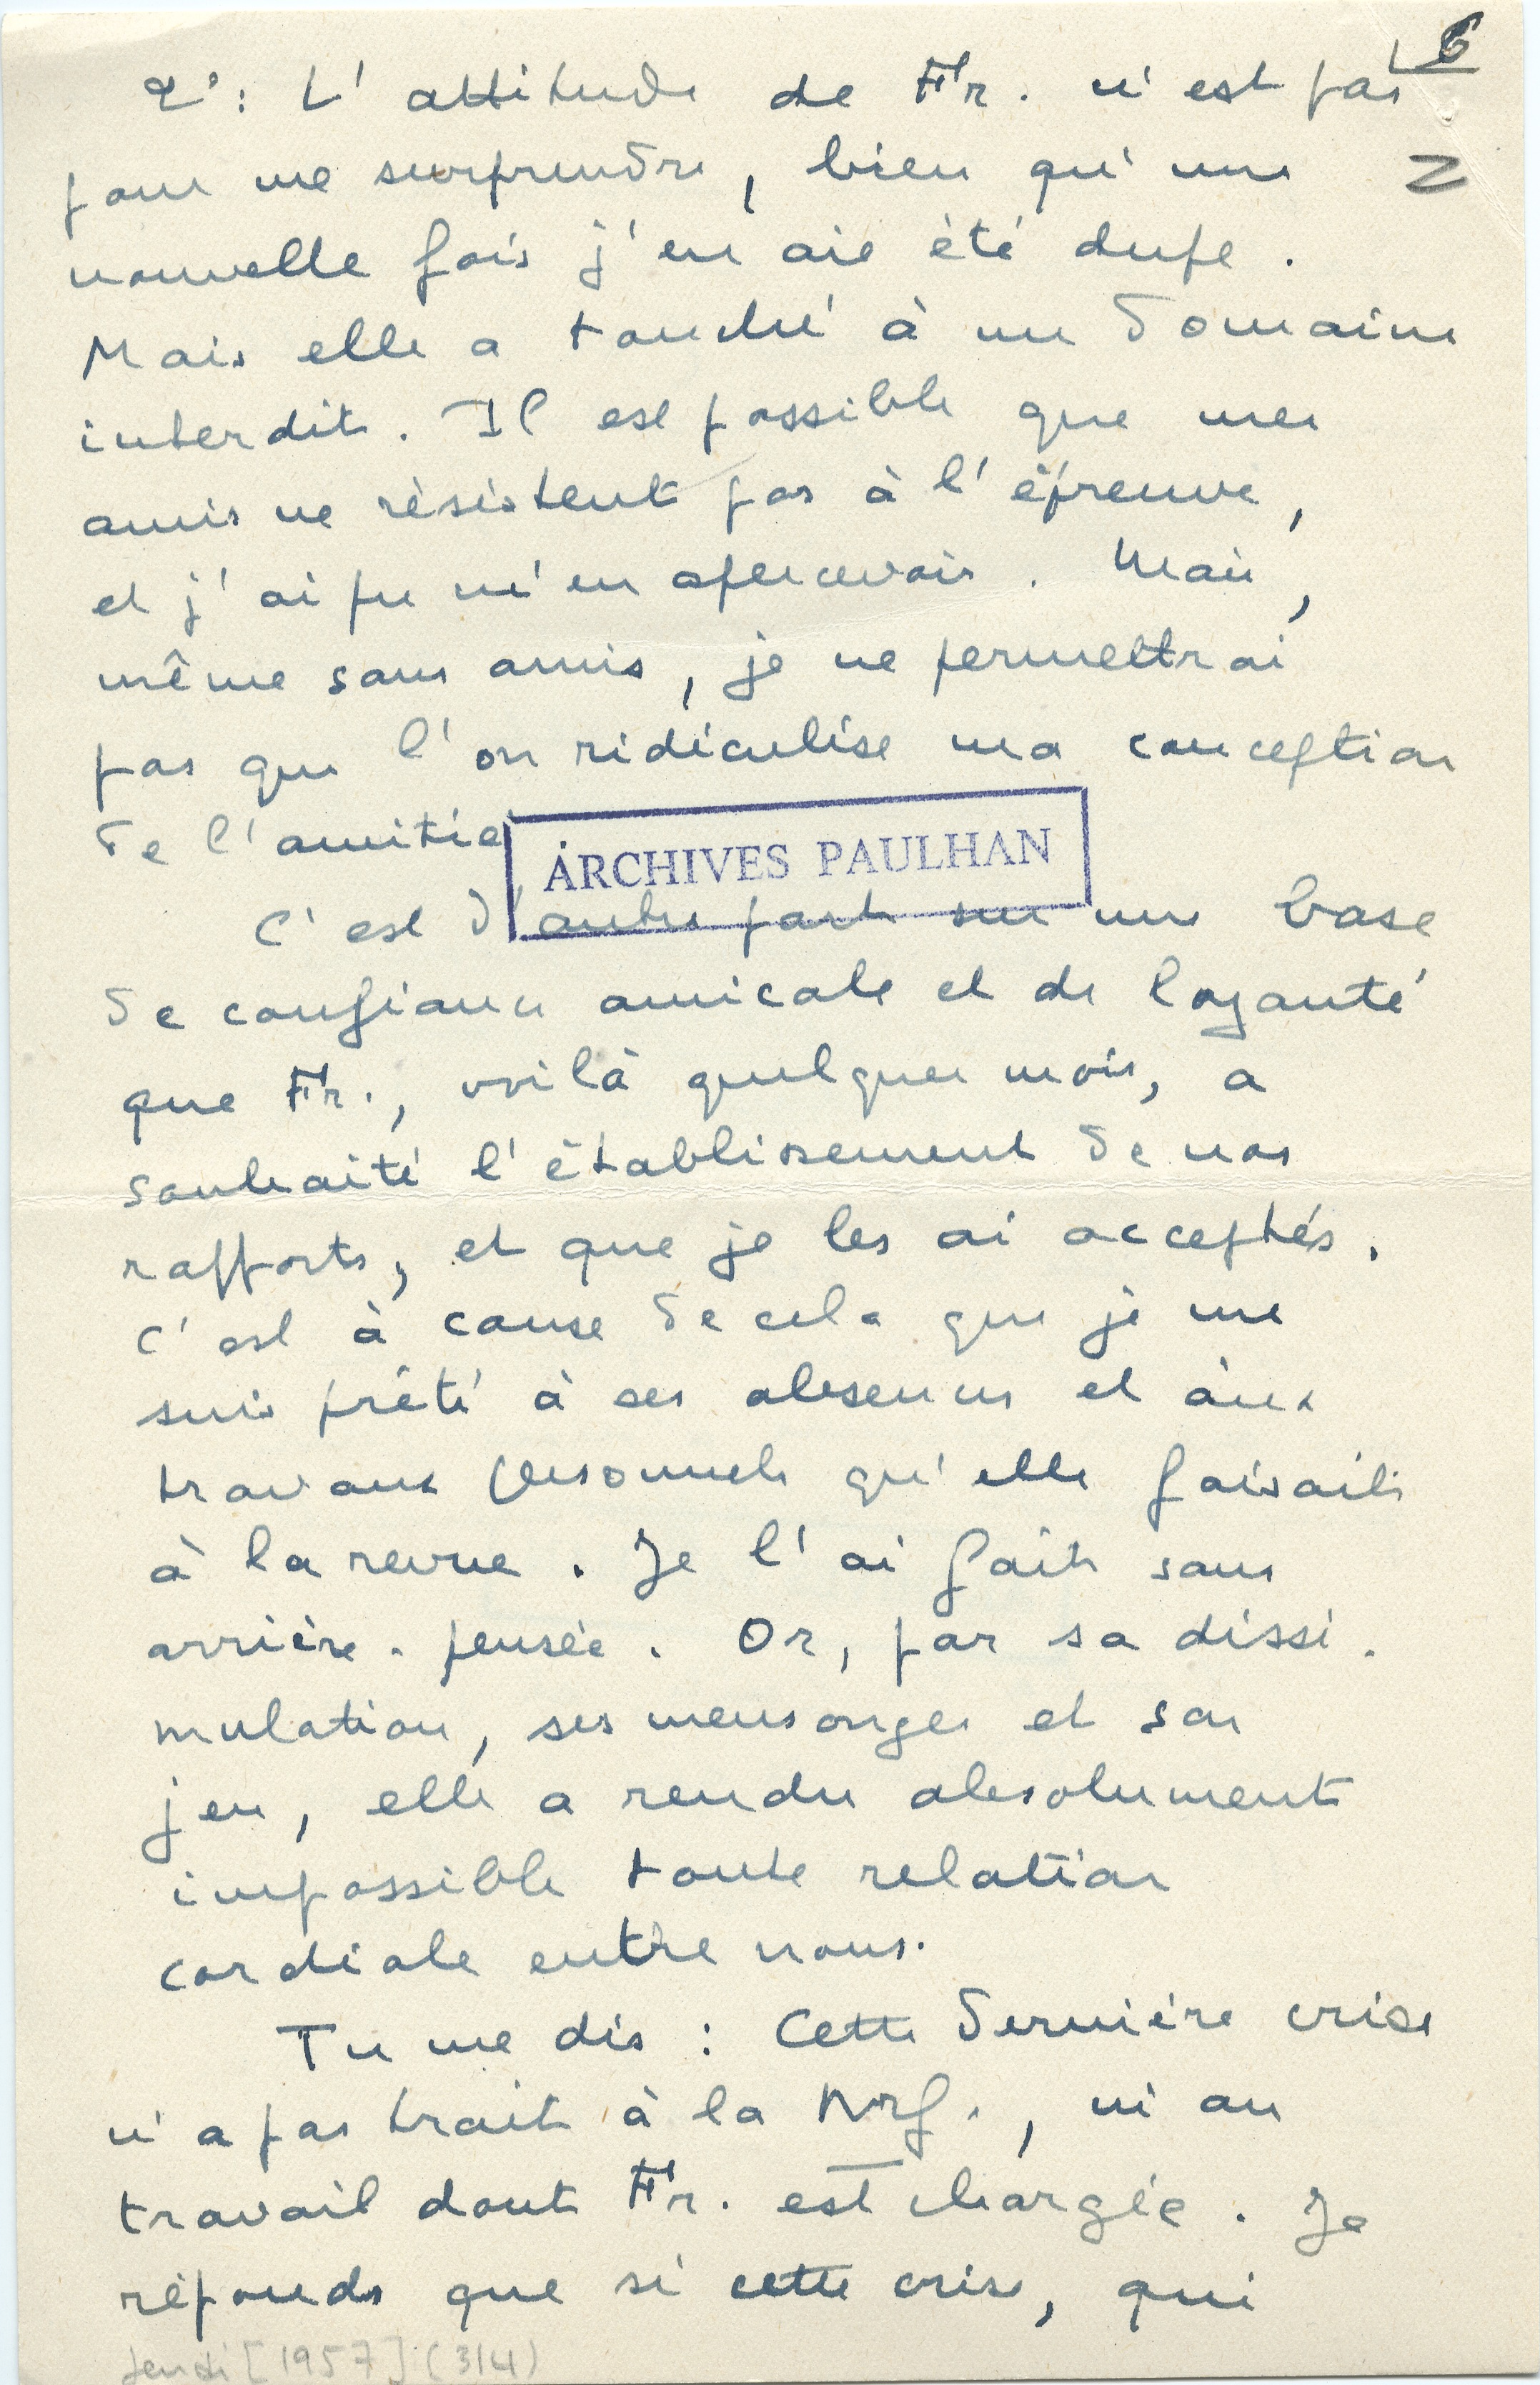 6
2°: L'attitude de Fr. n'est pas
pour me surprendre, bien qu'une
N
nouvelle fois j'en aie été dupe.
Mais elle a touché à un domaine
interdit. Il est possible que mes
amis ne résistent pas à l'épreuve,
et j'ai pu m'en apercevoir. Mais,
même sans amis, je ne permettrai
pas que l'on ridiculise ma conception
de l'amitié
ARCHIVES PAULHAN
C'est d'autre part sur une base
de confiance amicale et de loyauté
que Fr., voilà quelques mois, a
souhaité l'établissement de nos
rapports, et que je les ai acceptés.
C'est à cause de cela que je me
suis prêté à ses absences et aux
travaux personnels qu'elle faisait
à la revue. Je l'ai fait sans
arrière-pensée. Or, par sa dissi-
mulation, ses mensonges et son
jeu, elle a rendu absolument
impossible toute relation
cordiale entre nous.
Tu me dis : Cette dernière crise
n'a pas trait à la Nrf., ni au
travail dont Fr. est chargée. Je
réponds que si cette crise, qui
Jeudi [1957] (3/4)